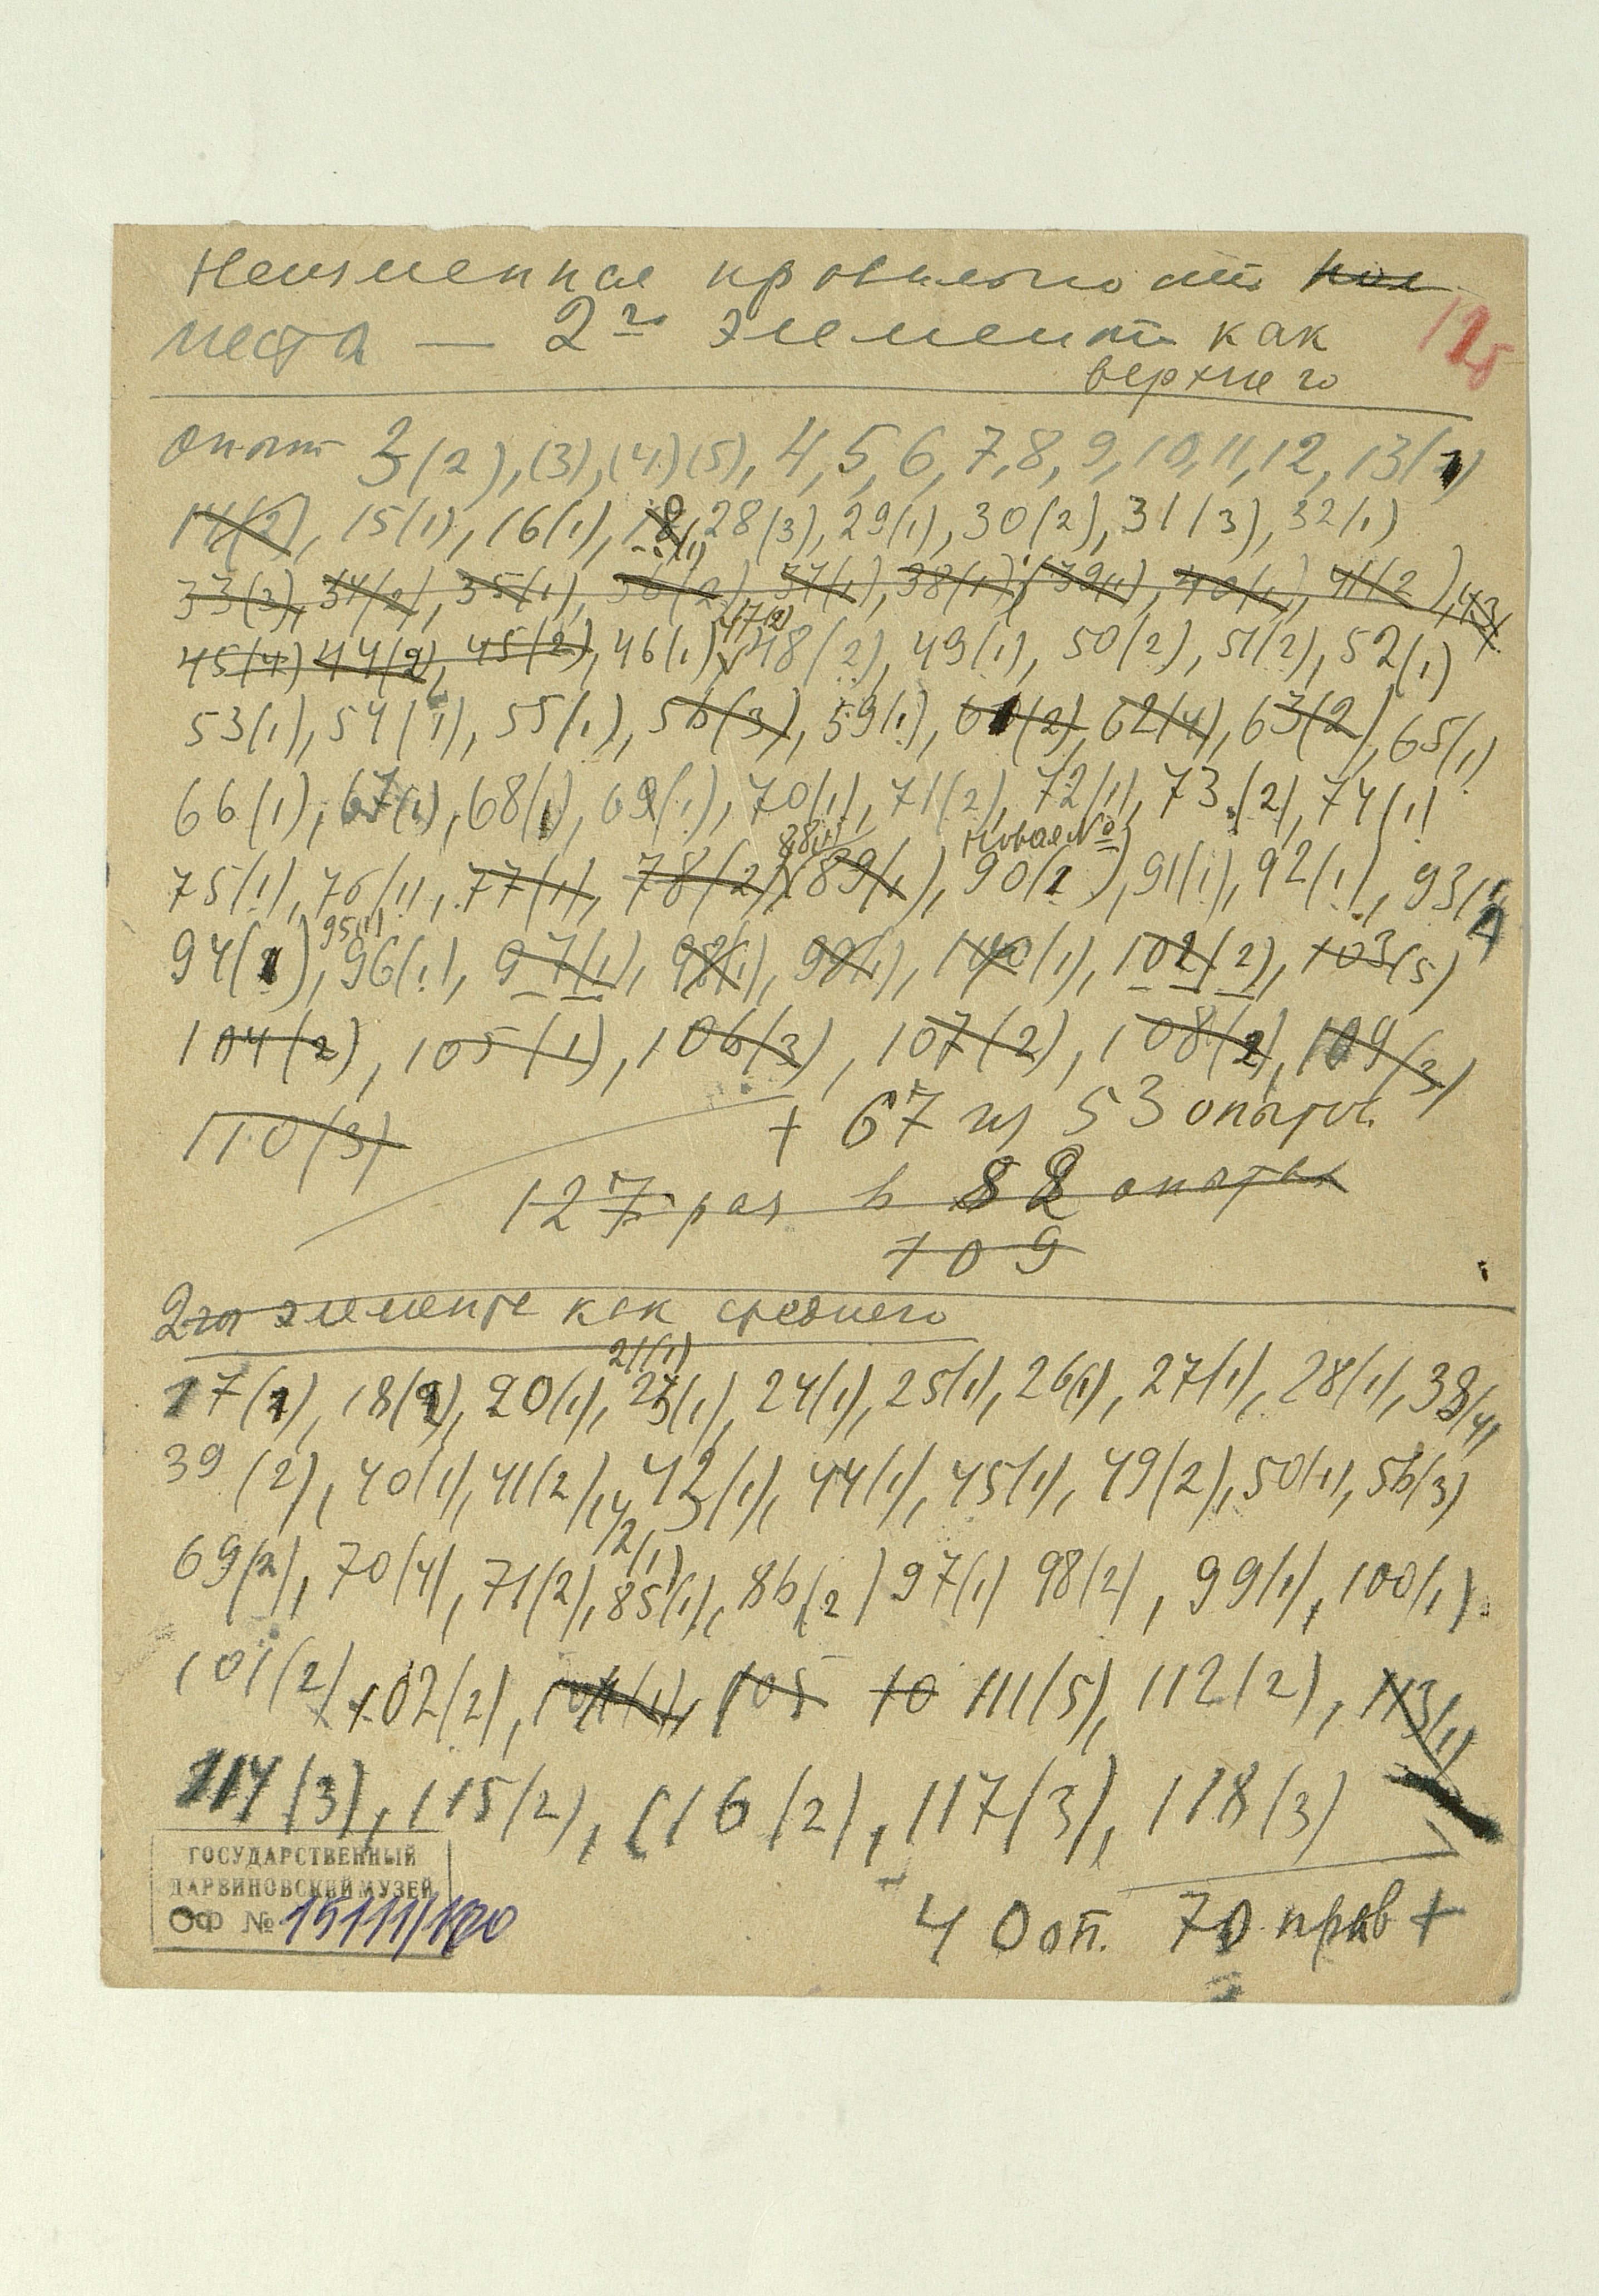 Неизменная правильность
места — 2го элемента как
верхнего
125
опыт 3(2), (3), (4) (5), 4, 5, 6, 7, 8, 9, 10, 11, 12, 13(1)
14(2), 15(1), 16(1), 18(1), 28(3), 29(1), 30(2), 31(3), 32(1)
33(3), 34(2), 35(1), 36(2), 37(1), 38(1), 39(1), 40(1), 41(2), 43
45(4) 44(2), 45(2), 46(1), 47(2) 48(2), 49(1), 50(2), 51(2), 52(1)
53(1), 54(1), 55(1), 56(3), 59(1), 61(2), 62(4), 63(2), 65(1)
66(1), 67(1), 68(1), 69(1), 70(1), 71(2), 72(1), 73(2), 74(1)
Новая №
75(1), 76(1), 77(1), 78(2), 88(1) 89(1), 90(1), 91(1), 92(1), 93(1)
94(1), 95(1) 96(1), 97(1), 98(1), 99(1), 100(1), 102(2), 103(5)
104(2), 105(1), 106(3), 107(2), 108(2), 109(3)
110(3)
+ 67 из 53 опытов
127 раз в 82 опытах
109
2го элемента как среднего
17(1), 18(2), 20(1), 21(1) 23(1), 24(1), 25(1), 26(1), 27(1), 28(1), 38(4)
39(2), 40(1), 41(2), 42(1) 43(1), 44(1), 45(1), 49(2), 50(1), 56(3)
69(2), 70(4), 71(2), 85(1), 86(2) 97(1) 98(2), 99(1), 100(1)
101(2) 102(2), 104(1), 105 10 111(5), 112(2), 113(1)
114(3), 115(2), 116(2), 117(3), 118(3)
40 оп. 70 прав +
ГОСУДАРСТВЕННЫЙ
ДАРВИНОВСКИЙ МУЗЕЙ
ОФ № 15111/180